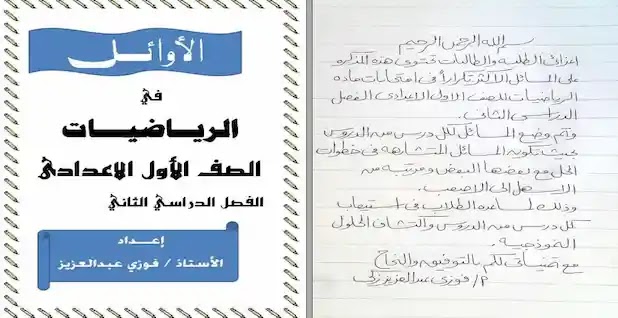 الأوائـل
في
الرياضيات
الصف الأول الاعدادي
الفصل الدراسي الثاني
إعـداد
الأستاذ / فوزي عبدالعزيز
بسم الله الرحمن الرحيم
اعزائي الطلبه والطالبات تحتوى هذه المذكره
على المسائل الاكثر تكراراً فى امتحانات ماده
الرياضيات للصف الاول الاعدادى الفصل
الدراسى الثانى.
وتم وضع المسائل لكل درس من الدروس
بحيث تكون المسائل المتشابهه فى خطوات
الحل مع بعضها البعض ومرتبه من
الاسهل الى الاصعب.
وذلك لمساعده الطلاب فى استيعاب
كل درس من الدروس واكتشاف الحلول
النموذجيه.
مع تمنياتى لكم بالتوفيق والنجاح
م/ فوزى عبد العزيز زكى